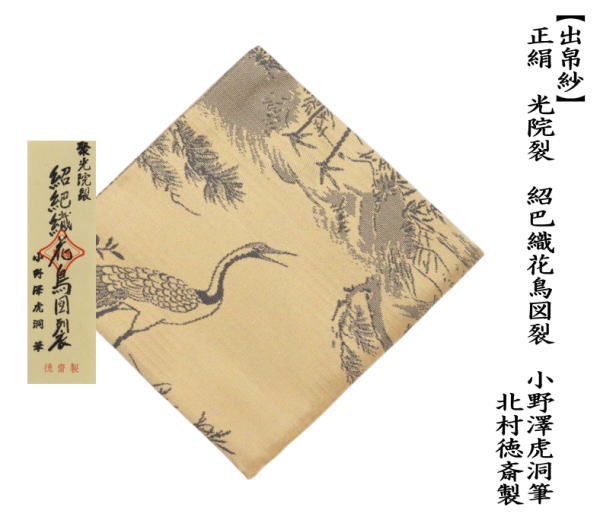 【出帛紗】
正絹　光院裂　紹巴織花鳥図裂　小野澤虎洞筆
北村徳斎製
聚光院裂
紹紦織花鳥図裂
小野澤虎洞筆
徳齋製